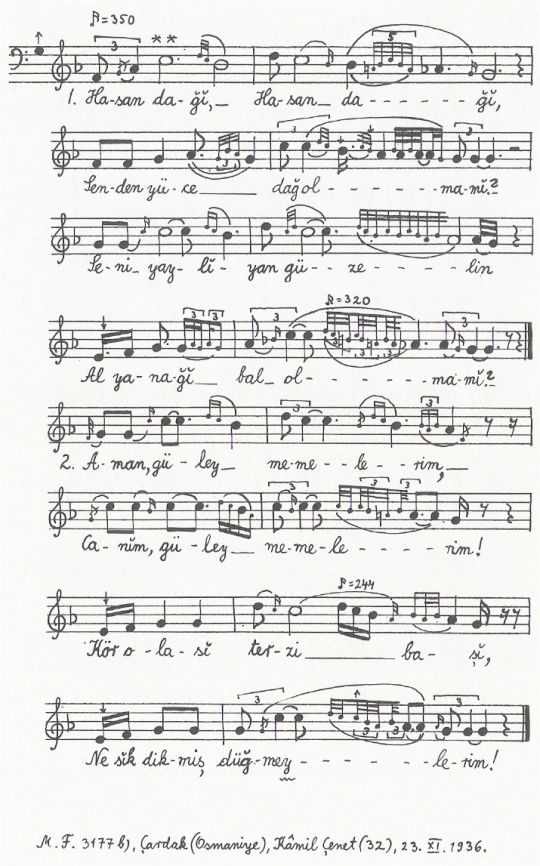 ♪=350
3 ** 5
1. Ha-san da-ğĭ,_ Ha-san_ da - - - - - - ğĭ,
3 3
Sen-den yü-ce____ dağ ol - - - - - - ma-mĭ?
Se-ni_ yay-lĭ-yan gü - - ze - - - - lin
♪=320
3 3 3 3
Al ya-na-ğĭ__ bal_ ol- - - - - - - ma-mĭ?
3 3 3
2. A-man, gü-ley_ me-me - - le - - rim,_
3 3 3
Ca-nĭm, gü-ley__ me-me-le - - - - - rim!
♪=244
Kör o-la-sĭ ter-zi________ ba-şĭ,
3 3
Ne sĭk dik-miş düğ-mey - - - - - - - le-rim!
M. F. 3177 b), Çardak (Osmaniye), Kâmil Çenet (32), 23. XI. 1936.